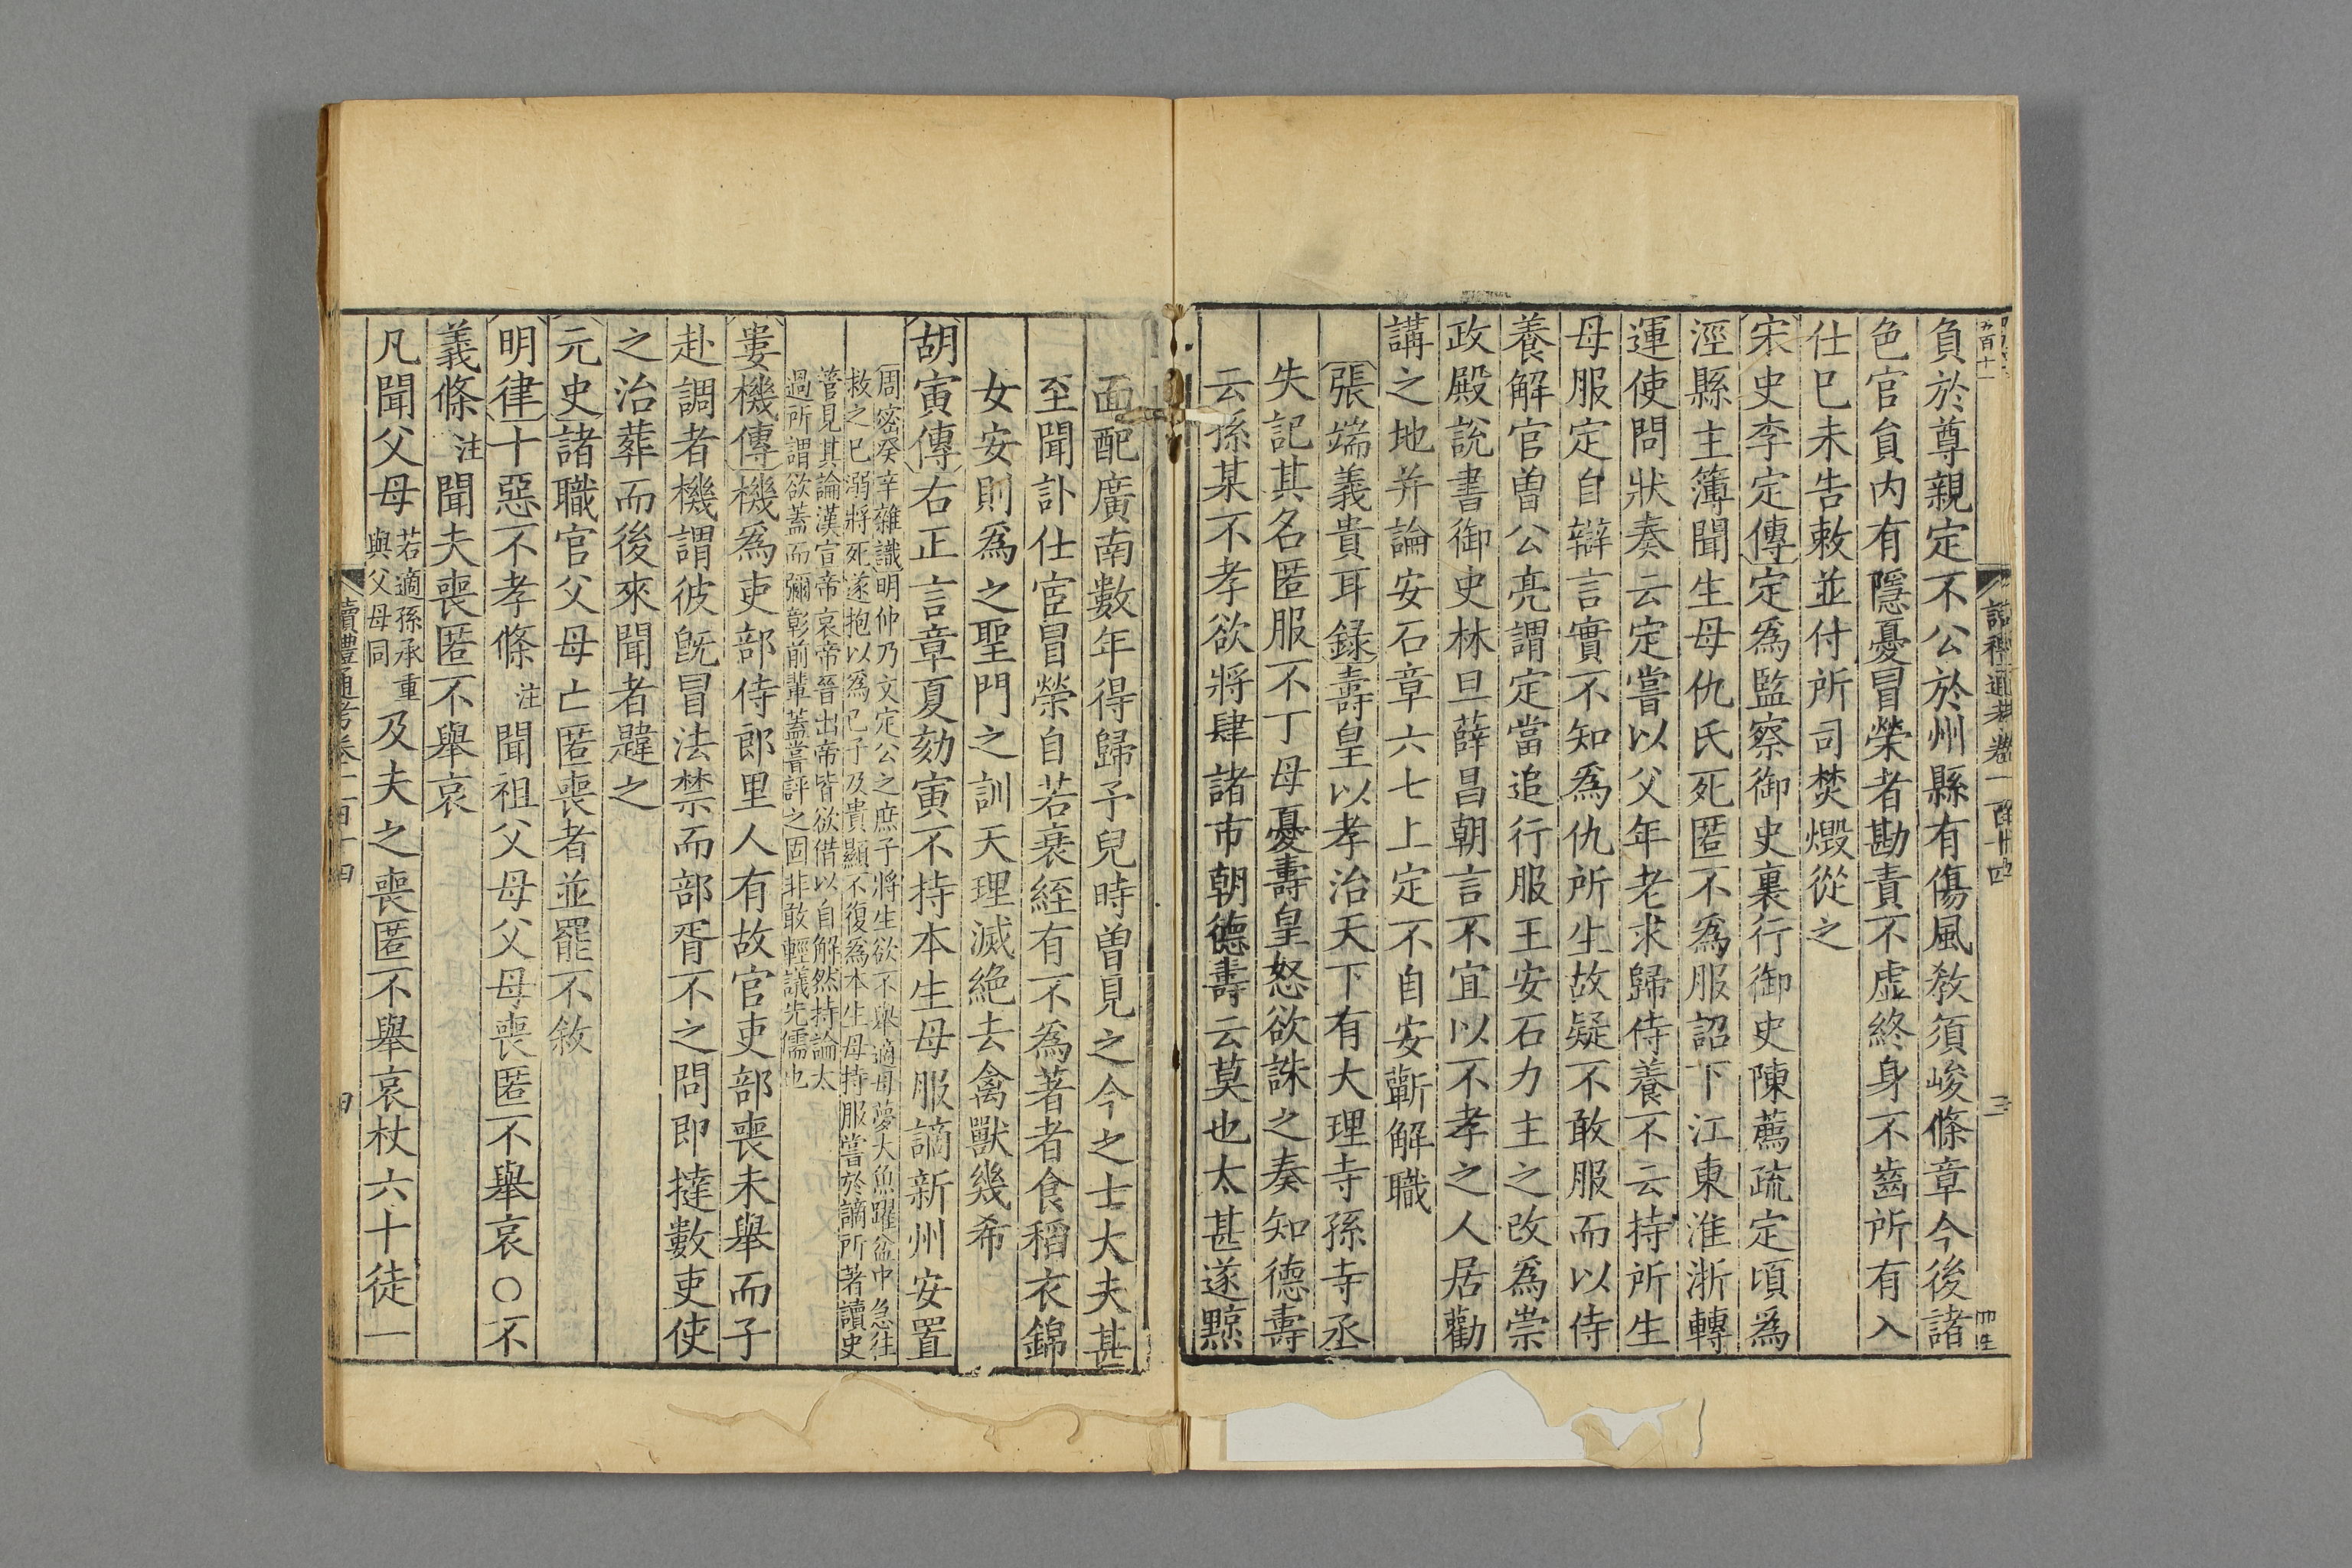 負於尊親定不公於州縣有傷風敎須峻條章今後諸
色官貟内有隱憂冒榮者勘責不虛終身不齒所有入
仕巳未告敕並付所司焚燬從之
宋史李定傳定爲監察御史裏行御史陳薦疏定頃爲
涇縣主簿聞生母仇氏死匿不爲服詔下江東淮浙轉
運使問狀奏云定嘗以父年老求歸侍養不云持所生
母服定自辯言實不知爲仇所生故疑不敢服而以侍
養解官曽公亮謂定當追行服王安石力主之改爲崇
政殿説書御史林旦薛昌朝言不宜以不孝之人居勸
講之地并論安石章六七上定不自安蘄解職
張端義貴耳錄壽皇以孝治天下有大理寺孫寺丞
失記其名匿服不丁母憂壽皇怒欲誅之奏知德壽
云孫某不孝欲將肆諸市朝德壽云莫也太甚遂黥
面配廣南數年得歸予兒時曽見之今之士大夫甚
至聞訃仕宦冒榮自若衰絰有不爲著者食稻衣錦
女安則爲之聖門之訓天理滅絶去禽獸幾希
胡寅傳右正言章夏劾寅不持本生母服謫新州安置
周密癸辛雜識明仲乃文定公之庶子將生欲不舉適母夢大魚躍盆中急往
救之巳溺將死遂抱以爲巳子及貴顯不復爲本生母持服嘗於謫所著讀史
管見其論漢宣帝哀帝晉出帝皆欲借以自解然持論太
過所謂欲蓋而彌彰前輩蓋嘗評之固非敢輕議先儒也
婁機傳機爲吏部侍郎里人有故官吏部喪未舉而子
赴調者機謂彼旣冒法禁而部胥不之問即撻數吏使
之治葬而後來聞者韙之
元史諸職官父母亡匿喪者並罷不敘
明律十惡不孝條注聞祖父母父母喪匿不舉哀○不
義條注聞夫喪匿不舉哀
凡聞父母若適孫承重與父母同及夫之喪匿不舉哀杖六十徒一
讀禮通考卷一百十四
四